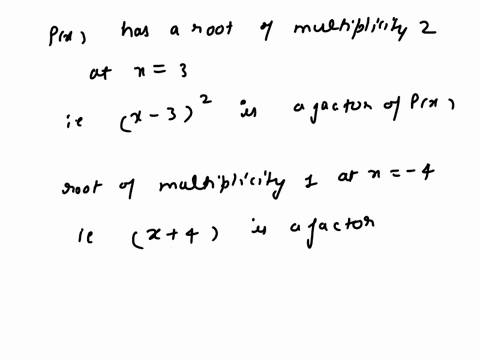 P(x) has a root of multiplicity 2
at x = 3
ie (x-3)² is a factor of P(x)
root of multiplicity 1 at x = -4
ie (x+4) is a factor